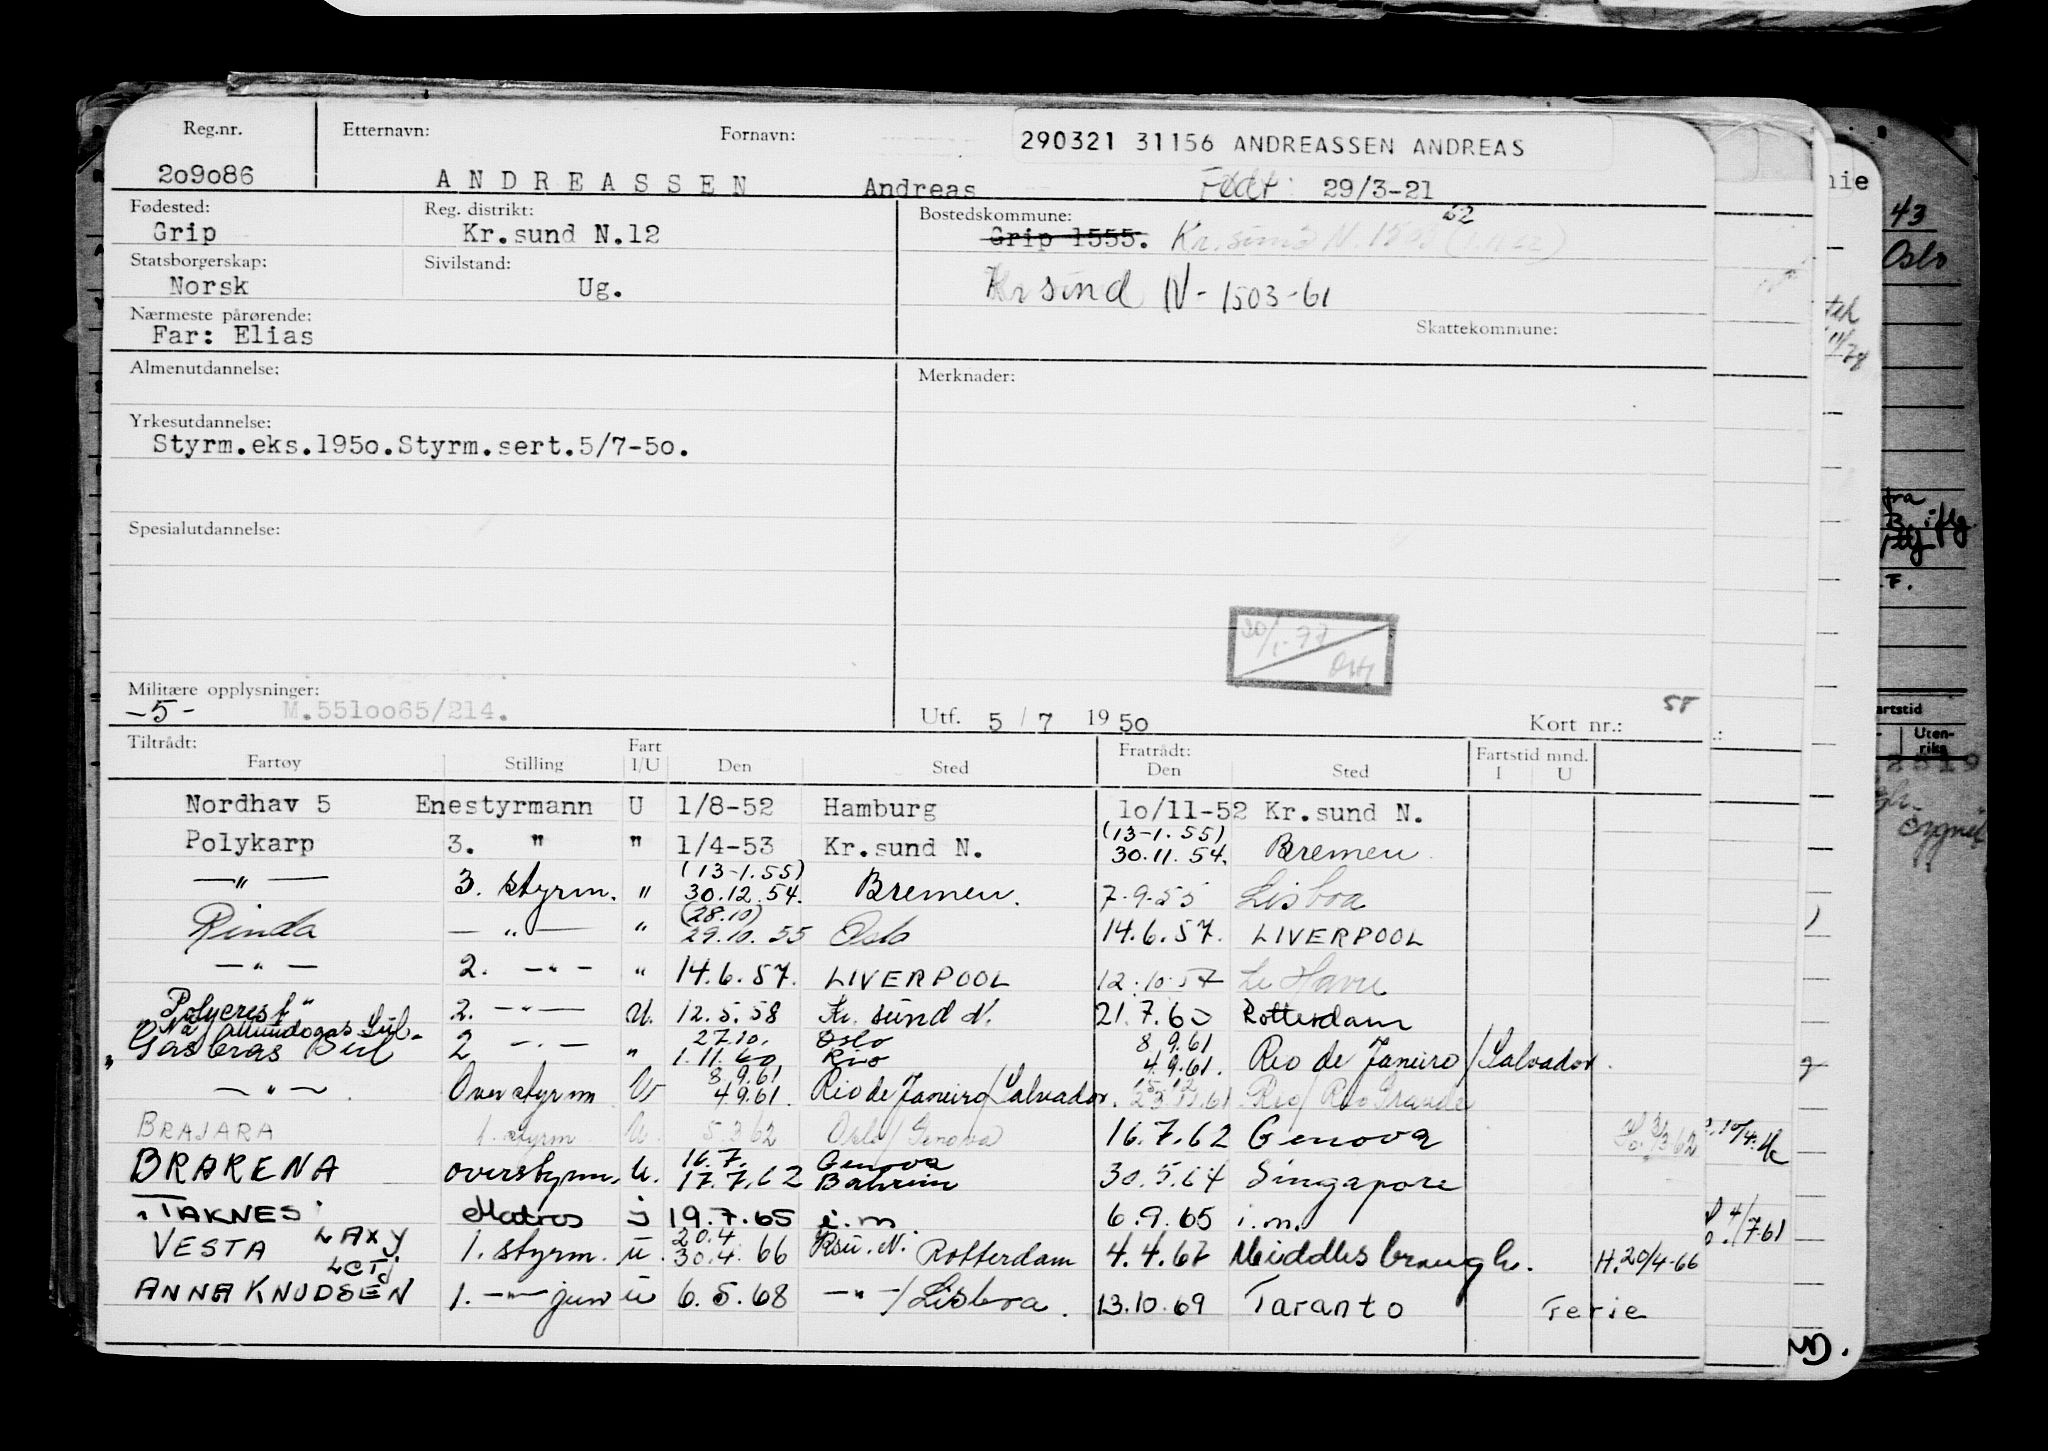 Reg.nr. Etternavn: Fornavn: 290321 31156 ANDREASSEN ANDREAS
209086 ANDREASSEN Andreas Født: 29/3-21
Fødested: Reg. distrikt: Bostedskommune:
Grip Kr.sund N.12 Grip 1555. Kr.sund N. 1503
Statsborgerskap: Sivilstand:
Norsk Ug. Kr sund N - 1503-61
Nærmeste pårørende: Skattekommune:
Far: Elias
Almenutdannelse: Merknader:
Yrkesutdannelse:
Styrm.eks.1950.Styrm.sert.5/7-50.
Spesialutdannelse:
20/1-77
Militære opplysninger: 58
-5- M.5510065/214. Utf. 5/7 1950 Kort nr.:
Tiltrådt: Fart Fratrådt: Fartstid mnd.
Fartøy Stilling I/U Den Sted Den Sted I U
Nordhav 5 Enestyrmann U 1/8-52 Hamburg 10/11-52 Kr.sund N.
Polykarp 3. " " 1/4-53 Kr.sund N. (13-1.55) 30.11.54. Bremen
—"— 3. styrm. " (13-1.55) 30.12.54. Bremen. 7-9-55 Lisboa
Rinda —"— " (28.10) 29.10.55 Oslo 14.6.57. LIVERPOOL
—"— 2. —"— " 14.6.57. LIVERPOOL 12.10.57 Le Havre
Polycrest 2. —"— U. 12.5.58 Kr. sund N. 21.7.60 Rotterdam
Gasbras Sul 2 —"— " 27.10. 1.11.60 Oslo Rio 8.9.61 4.9.61. Rio de Janeiro/Salvador.
—"— Overstyrm U 8.9.61 4.9.61. Rio de Janeiro/Salvador. 15.12 23.11.61 Rio/Rio Grande
BRAJARA 1. styrm U. 5.3.62 Oslo/Genova 16.7.62 Genova
BRARENA overstyrm. U. 16.7. 17.7.62 Genova Bahrein 30.5.64 Singapore
TAKNES Matros i 19.7.65 i.m. 6.9.65 i.m.
VESTA LAXY 1. styrm. u. 20.4 30.4.66 Ksu. N. Rotterdam 4.4.67 Middlesbrough. H.20/4-66
ANNA KNUDSEN LCTJ 1. —"— jun u 6.5.68 —"—/Lisboa. 13.10.69 Taranto Ferie
43
Oslo
fra
F.
artstid
Uten-
riks